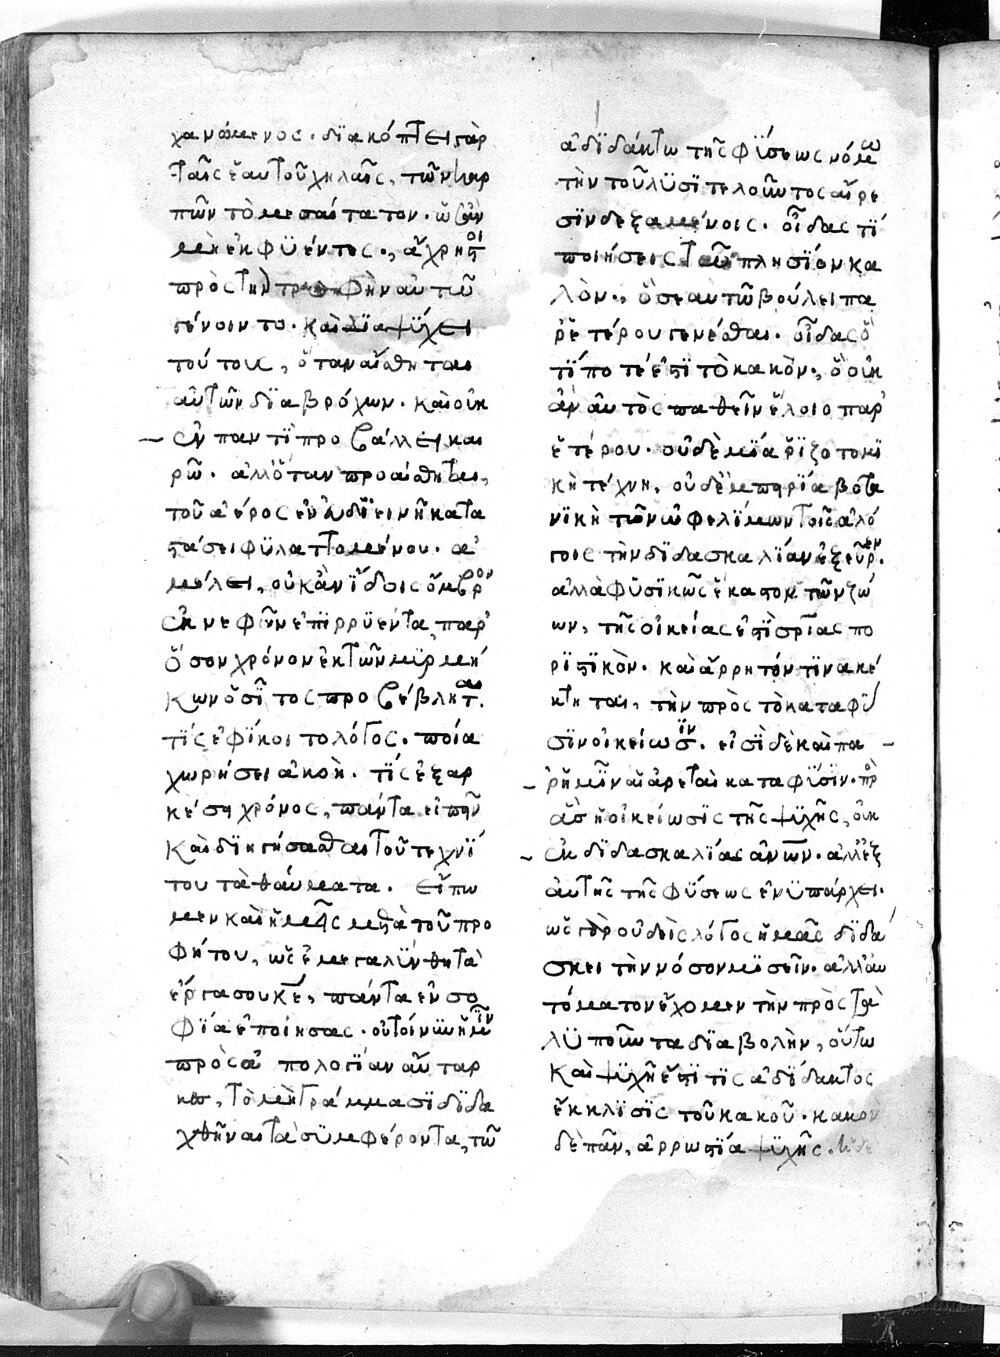 χανώμενος. δϊακόπτει γὰρ
ταῖς ἑαυτοῦ χηλαῖς, τῶν καρ
πῶν τὸ μεσαίτατον. ὡς ἂν
μὴ ἐκφϋέντες, ἄχρηστοι
πρὸς τὴν τροφὴν αὐτῶ
γένοιντο. καὶ δϊαψύχει
τούτους, ὅταν αἴσθηται
αὐτῶν δϊαβρόχων. καὶ οὐκ
ἐν παντὶ προβάλλει και
ρῶ. ἀλλ' ὅταν προαίσθηται,
τοῦ ἀέρος ἐν εὐδϊεινῆ κατα
στάσει φϋλαττομένου. ἀ
μέλει, οὐκ ἂν ἴδοις ὄμβρον
ἐκ νεφῶν ἐπϊρρϋέντα, παρ'
ὅσον χρόνον ἐκ τῶν μϋρμή
κων ὁ σῖτος προβέβληται.
τίς ἐφίκοιτο λόγος. ποία
χωρήσει ἀκοὴ. τίς ἐξαρ
κέση χρόνος, πάντα εἰπεῖν
καὶ δϊηγήσασθαι τοῦ τεχνί
του τὰ θαύματα. εἴπω
μεν καὶ ἡμεῖς μετὰ τοῦ προ
φήτου, ὡς ἐμεγαλϋνθη τὰ
ἔργα σου κε, πάντα ἐν σο
φία ἐποίησας. οὔτοίνϋν ἡμῖν
πρὸς ἀπολογίαν αὔταρ
κες, τὸ μὴ γράμμασϊ δϊδα
χθῆναι τὰ σϋμφέροντα, τῶ
ἀδϊδάκτω τῆς φϋσεως νόμω
τὴν τοῦ λϋσϊτελοῦντος αἵρε
σϊν δεξαμένοις. οἶδας τί
ποιήσεις τῶ πλησίον κα
λὸν, ὃ σεαυτῶ βούλει πα
ρ' ἑτέρου γενέσθαι. οἶδας ὅ
τϊ ποτέ ἐστϊ τὸ κακὸν, ὃ οὐκ
ἂν αὐτὸς παθεῖν ἕλοιο παρ'
ἑτέρου. οὐδὲ μϊά ῥϊζοτομϊ
κὴ τέχνη, οὐδὲ ἐμπειρία βοτα
νϊκὴ τῶν ὠφελίμων τοῖς ἀλό
γοις τὴν δϊδασκαλίαν ἐξεῦρεν.
ἀλλὰ φϋσϊκῶς ἕκαστον τῶν ζώ
ων, τῆς οἰκείας ἐστϊ σρίας πο
ρϊστϊκὸν. καὶ ἄρρητόν τϊνα κέ
κτηται, τὴν πρὸς τὸ κατὰ φϋ
σϊν οἰκείωσϊν. εἰσὶ δὲ καὶ πα
ρ' ἡμῖν αἱ ἀρεταὶ κατὰ φϋσϊν. πρὸς
ἃς ἡ οἰκείωσϊς τῆς ψϋχῆς, οὐκ
ἐκ δϊδασκαλίας ἀνων. ἀλλ' ἐξ
αὐτῆς τῆς φϋσεως ἐνϋπάρχει.
ὡς γὰρ οὐδεὶς λόγος ἡμᾶς δϊδά
σκει τὴν νόσον μϊσεῖν. ἀλλ' αὐ
τόματον ἔχομεν τὴν πρὸς τὰ
λϋποῦντα δϊαβολὴν, οὕτω
καὶ ψϋχῆ ἐστϊ τϊς ἀδϊδακτος
ἔκκλϊσϊς τοῦ κακοῦ. κακὸν
δὲ πᾶν, ἀρρωστία ψϋχῆς.